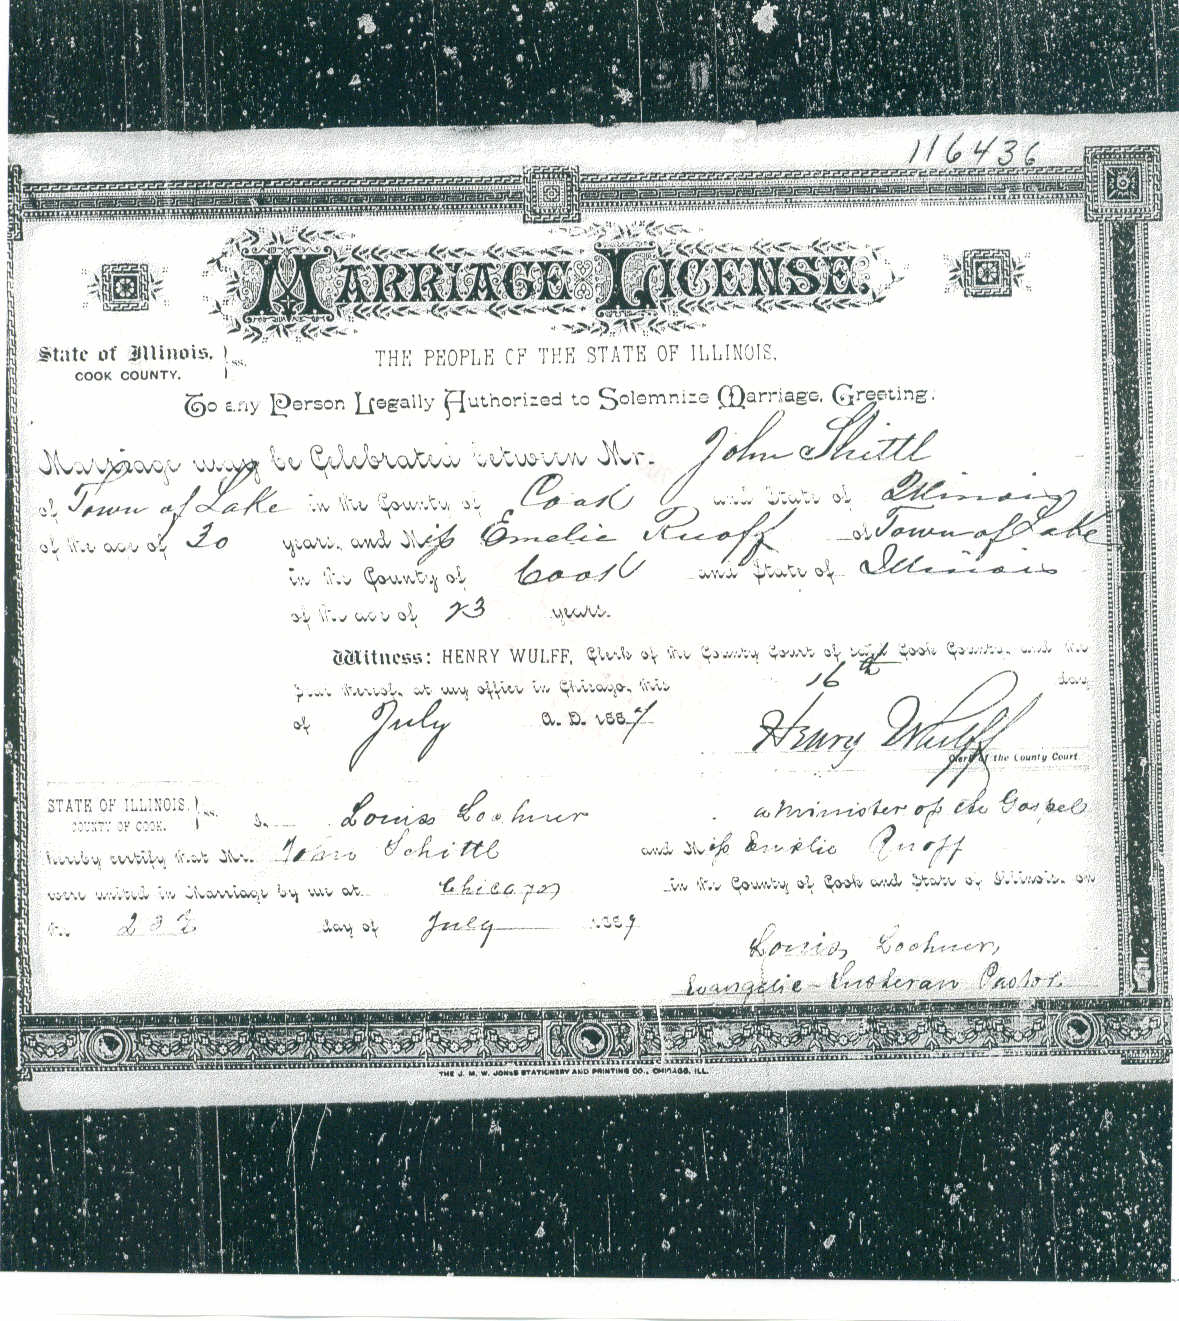 116436
MARRIAGE LICENSE.
State of Illinois, } ss.
COOK COUNTY.
THE PEOPLE OF THE STATE OF ILLINOIS,
To any Person Legally Authorized to Solemnize Marriage, Greeting:
Marriage may be Celebrated between Mr. John Shittl
of Town of Lake in the County of Cook and State of Illinois
of the age of 30 years, and Miss Emelie Ruoff of Town of Lake
in the County of Cook and State of Illinois
of the age of 23 years.
Witness: HENRY WULFF, Clerk of the County Court of said Cook County, and the
Seal thereof, at my office in Chicago, this 16th day
of July A. D. 188
Henry Wulff
Clerk of the County Court
STATE OF ILLINOIS, } ss.
COUNTY OF COOK.
I, Louis Lochner a Minister of the Gospel
hereby certify that Mr. John Schittl and Miss Emelie Ruoff
were united in Marriage by me at Chicago in the County of Cook and State of Illinois, on
the day of July
Louis Lochner,
Evangelic-Lutheran Pastor.
THE J. M. W. JONES STATIONERY AND PRINTING CO., CHICAGO, ILL.